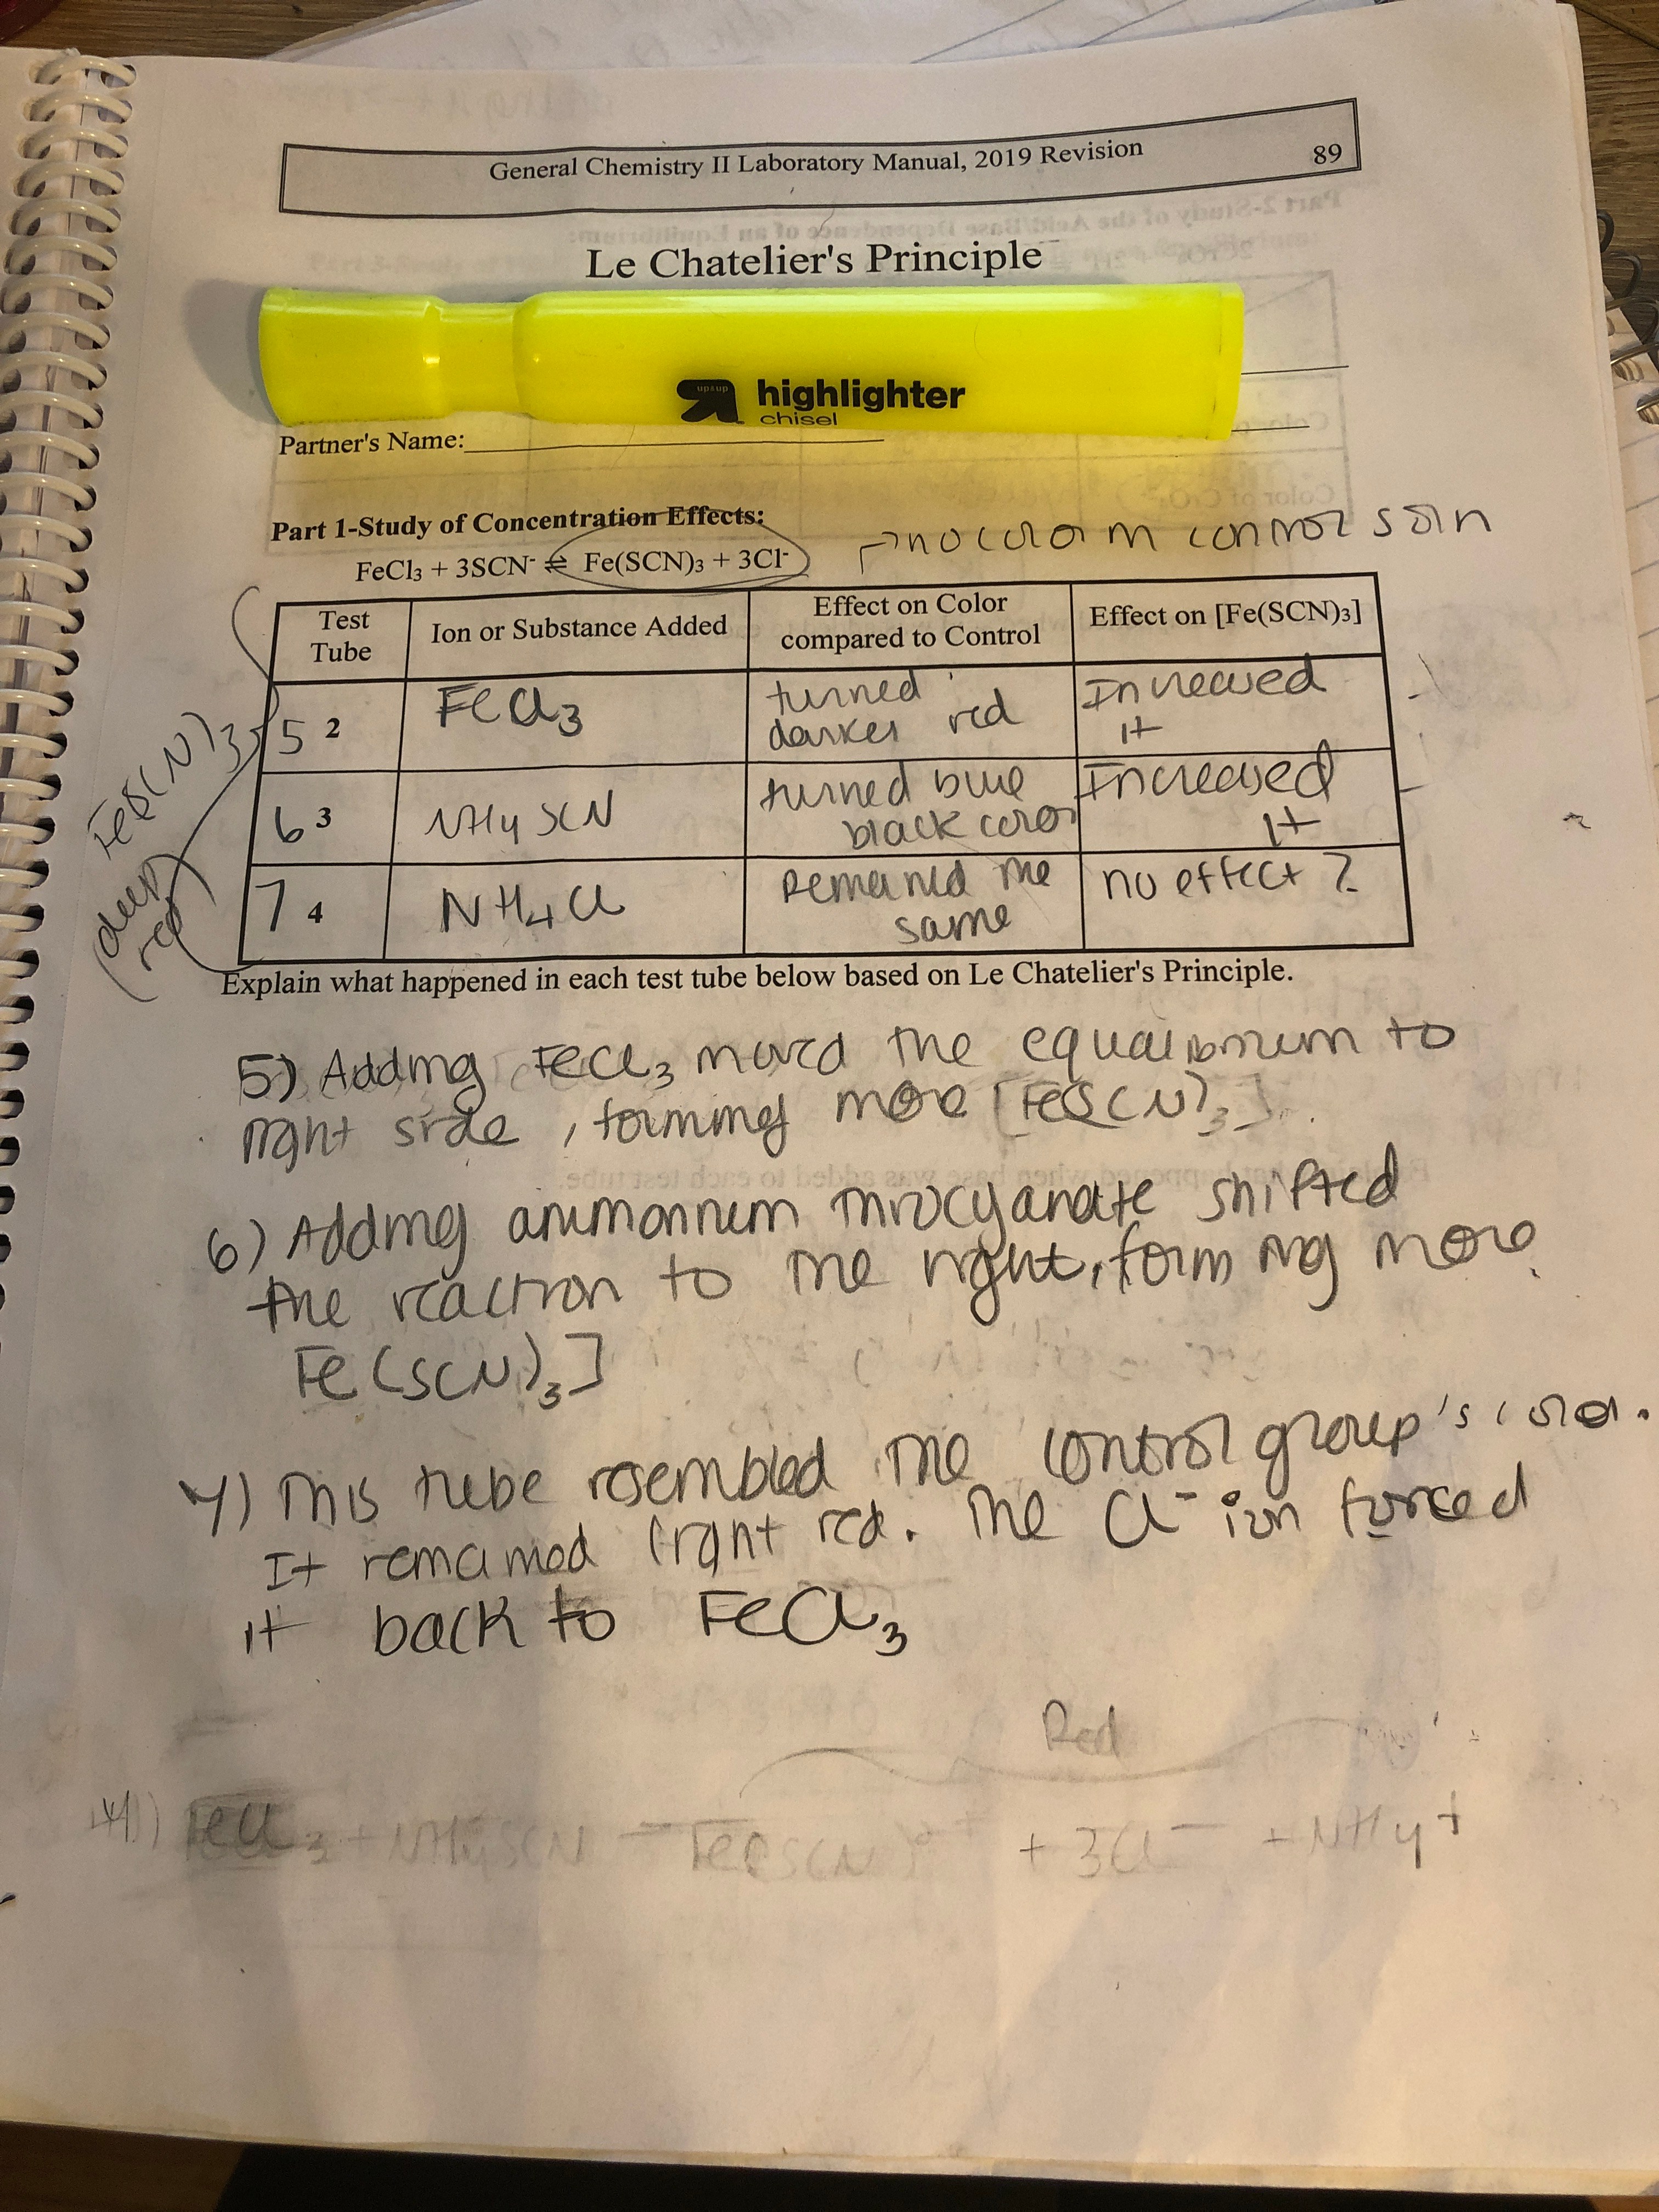 General Chemistry II Laboratory Manual, 2019 Revision 89
Le Chatelier's Principle
up&up
highlighter
chisel
Partner's Name:
Part 1-Study of Concentration Effects:
no color in control soln
FeCl3 + 3SCN- ⇌ Fe(SCN)3 + 3Cl-
Test Tube
Ion or Substance Added
Effect on Color compared to Control
Effect on [Fe(SCN)3]
5 2
FeCl3
turned darker red
Increased it
6 3
NH4SCN
turned blue black color
Increased it
7 4
NH4Cl
Remained the same
no effect ?
FeS(N)3
(deep red
Explain what happened in each test tube below based on Le Chatelier's Principle.
5) Adding FeCl3 moved the equalibrium to
right side, forming more [FeS(N)3].
6) Adding ammonium thiocyanate shifted
the reaction to the right, forming more
Fe(SCN)3]
7) This tube resembled the control group's color.
It remained light red. The Cl- ion forced
it back to FeCl3
Red
FeCl3 + NH4SCN
+ 3Cl- + NH4+